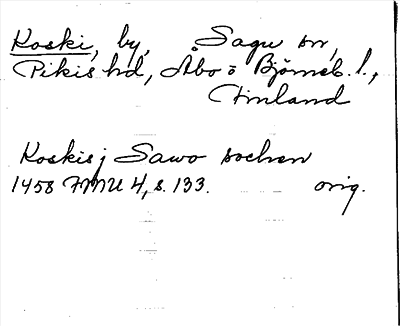 Koski, by, Sagu sn,
Pikis hd, Åbo o Björneb. l.,
Finland
Koskis j Sawo sochen
1458 FMU 4, s. 133. orig.